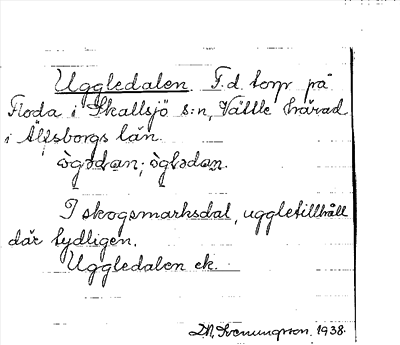 Uggledalen. F.d. torp på
Floda i Skallsjö s:n, Vättle härad
i Älvsborgs län.
ògədan; òglədan.
I skogsmarksdal, uggletillhåll
där tydligen.
Uggledalen ek.
D.N. Svenungsson 1938.